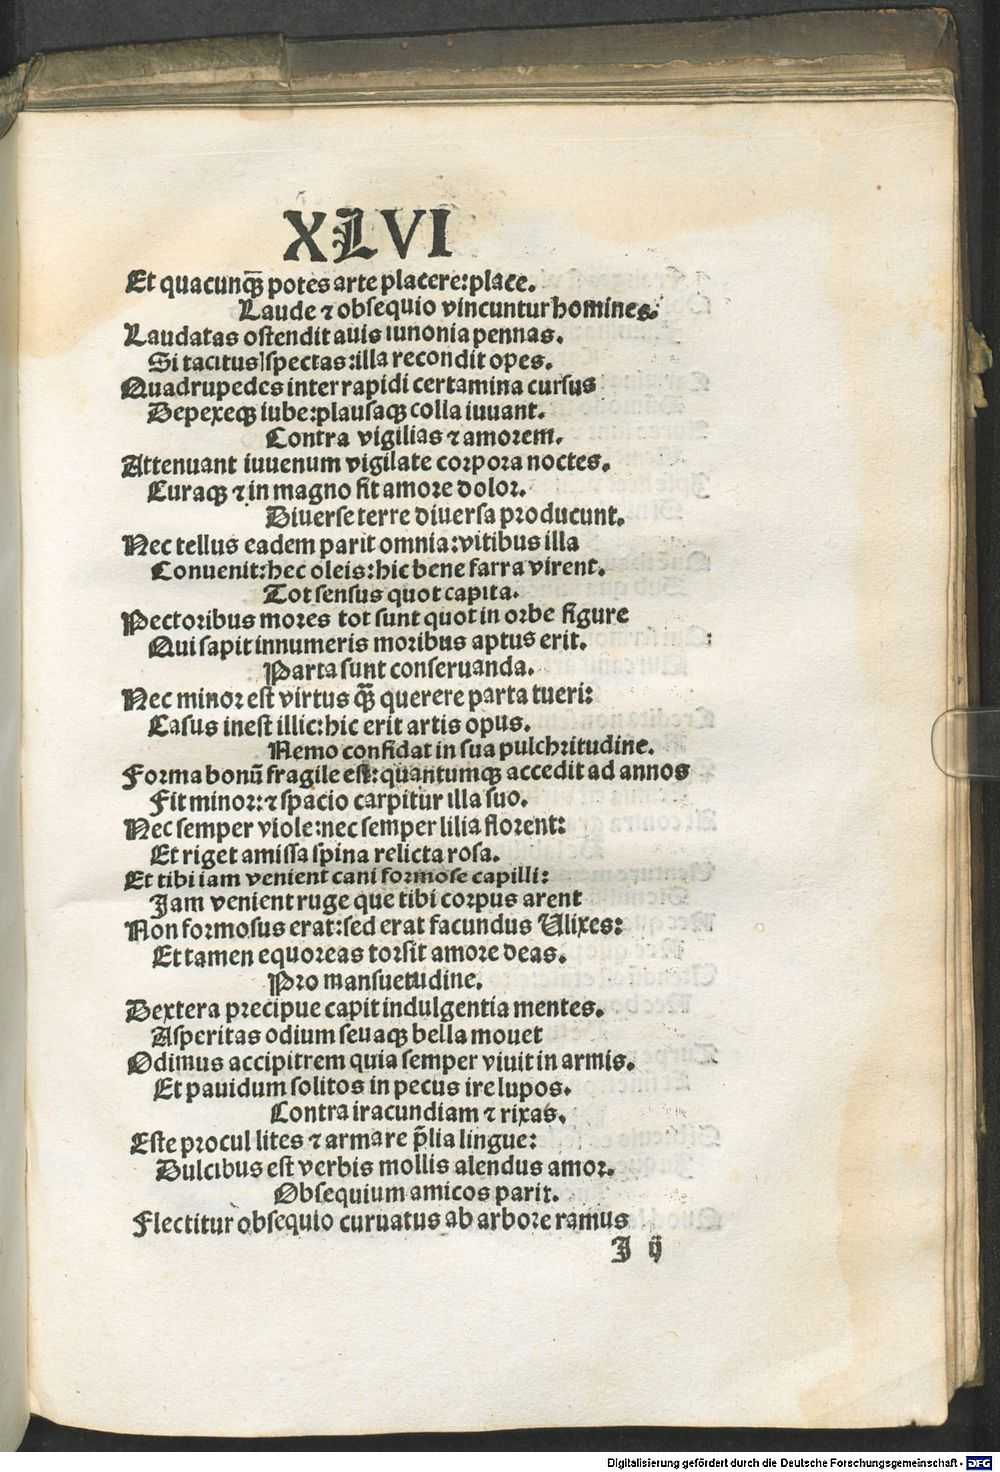 XLVI
Et quacunq̃ potes arte placere: place.
Laude ⁊ obsequio vincuntur homines.
Laudatas ostendit auis iunonia pennas.
Si tacitus spectas: illa recondit opes.
Quadrupedes inter rapidi certamina cursus
Depexeqꝫ iube: plausaqꝫ colla iuuant.
Contra vigilias ⁊ amorem.
Attenuant iuuenum vigilate corpora noctes.
Curaqꝫ ⁊ in magno fit amore dolor.
Diuerse terre diuersa producunt.
Nec tellus eadem parit omnia: vitibus illa
Conuenit: hec oleis: hic bene farra virent.
Tot sensus quot capita.
Pectoribus mores tot sunt quot in orbe figure
Qui sapit innumeris moribus aptus erit.
Parta sunt conseruanda.
Nec minor est virtus q̃ȝ querere parta tueri:
Casus inest illic: hic erit artis opus.
Nemo confidat in sua pulchritudine.
Forma bonū fragile est: quantumqꝫ accedit ad annos
Fit minor: ⁊ spacio carpitur illa suo.
Nec semper viole: nec semper lilia florent:
Et riget amissa spina relicta rosa.
Et tibi iam venient cani formose capilli:
Jam venient ruge que tibi corpus arent
Non formosus erat: sed erat facundus Ulixes:
Et tamen equoreas torsit amore deas.
Pro mansuetudine.
Dextera precipue capit indulgentia mentes.
Asperitas odium seuaqꝫ bella mouet
Odimus accipitrem quia semper viuit in armis.
Et pauidum solitos in pecus ire lupos.
Contra iracundiam ⁊ rixas.
Este procul lites ⁊ amare p̃lia lingue:
Dulcibus est verbis mollis alendus amor.
Obsequium amicos parit.
Flectitur obsequio curuatus ab arbore ramus
J ij
Digitalisierung gefördert durch die Deutsche Forschungsgemeinschaft - DFG